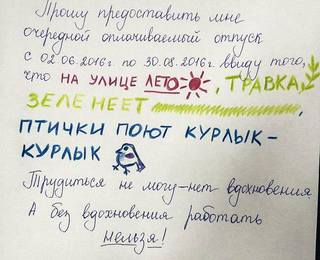 Прошу предоставить мне
очередной оплачиваемый отпуск
с 02.06.2016г. по 30.08.2016г. ввиду того,
что НА УЛИЦЕ ЛЕТО, ТРАВКА
ЗЕЛЕНЕЕТ,
ПТИЧКИ ПОЮТ КУРЛЫК-
КУРЛЫК
Трудиться не могу-нет вдохновения
А без вдохновения работать
нельзя!